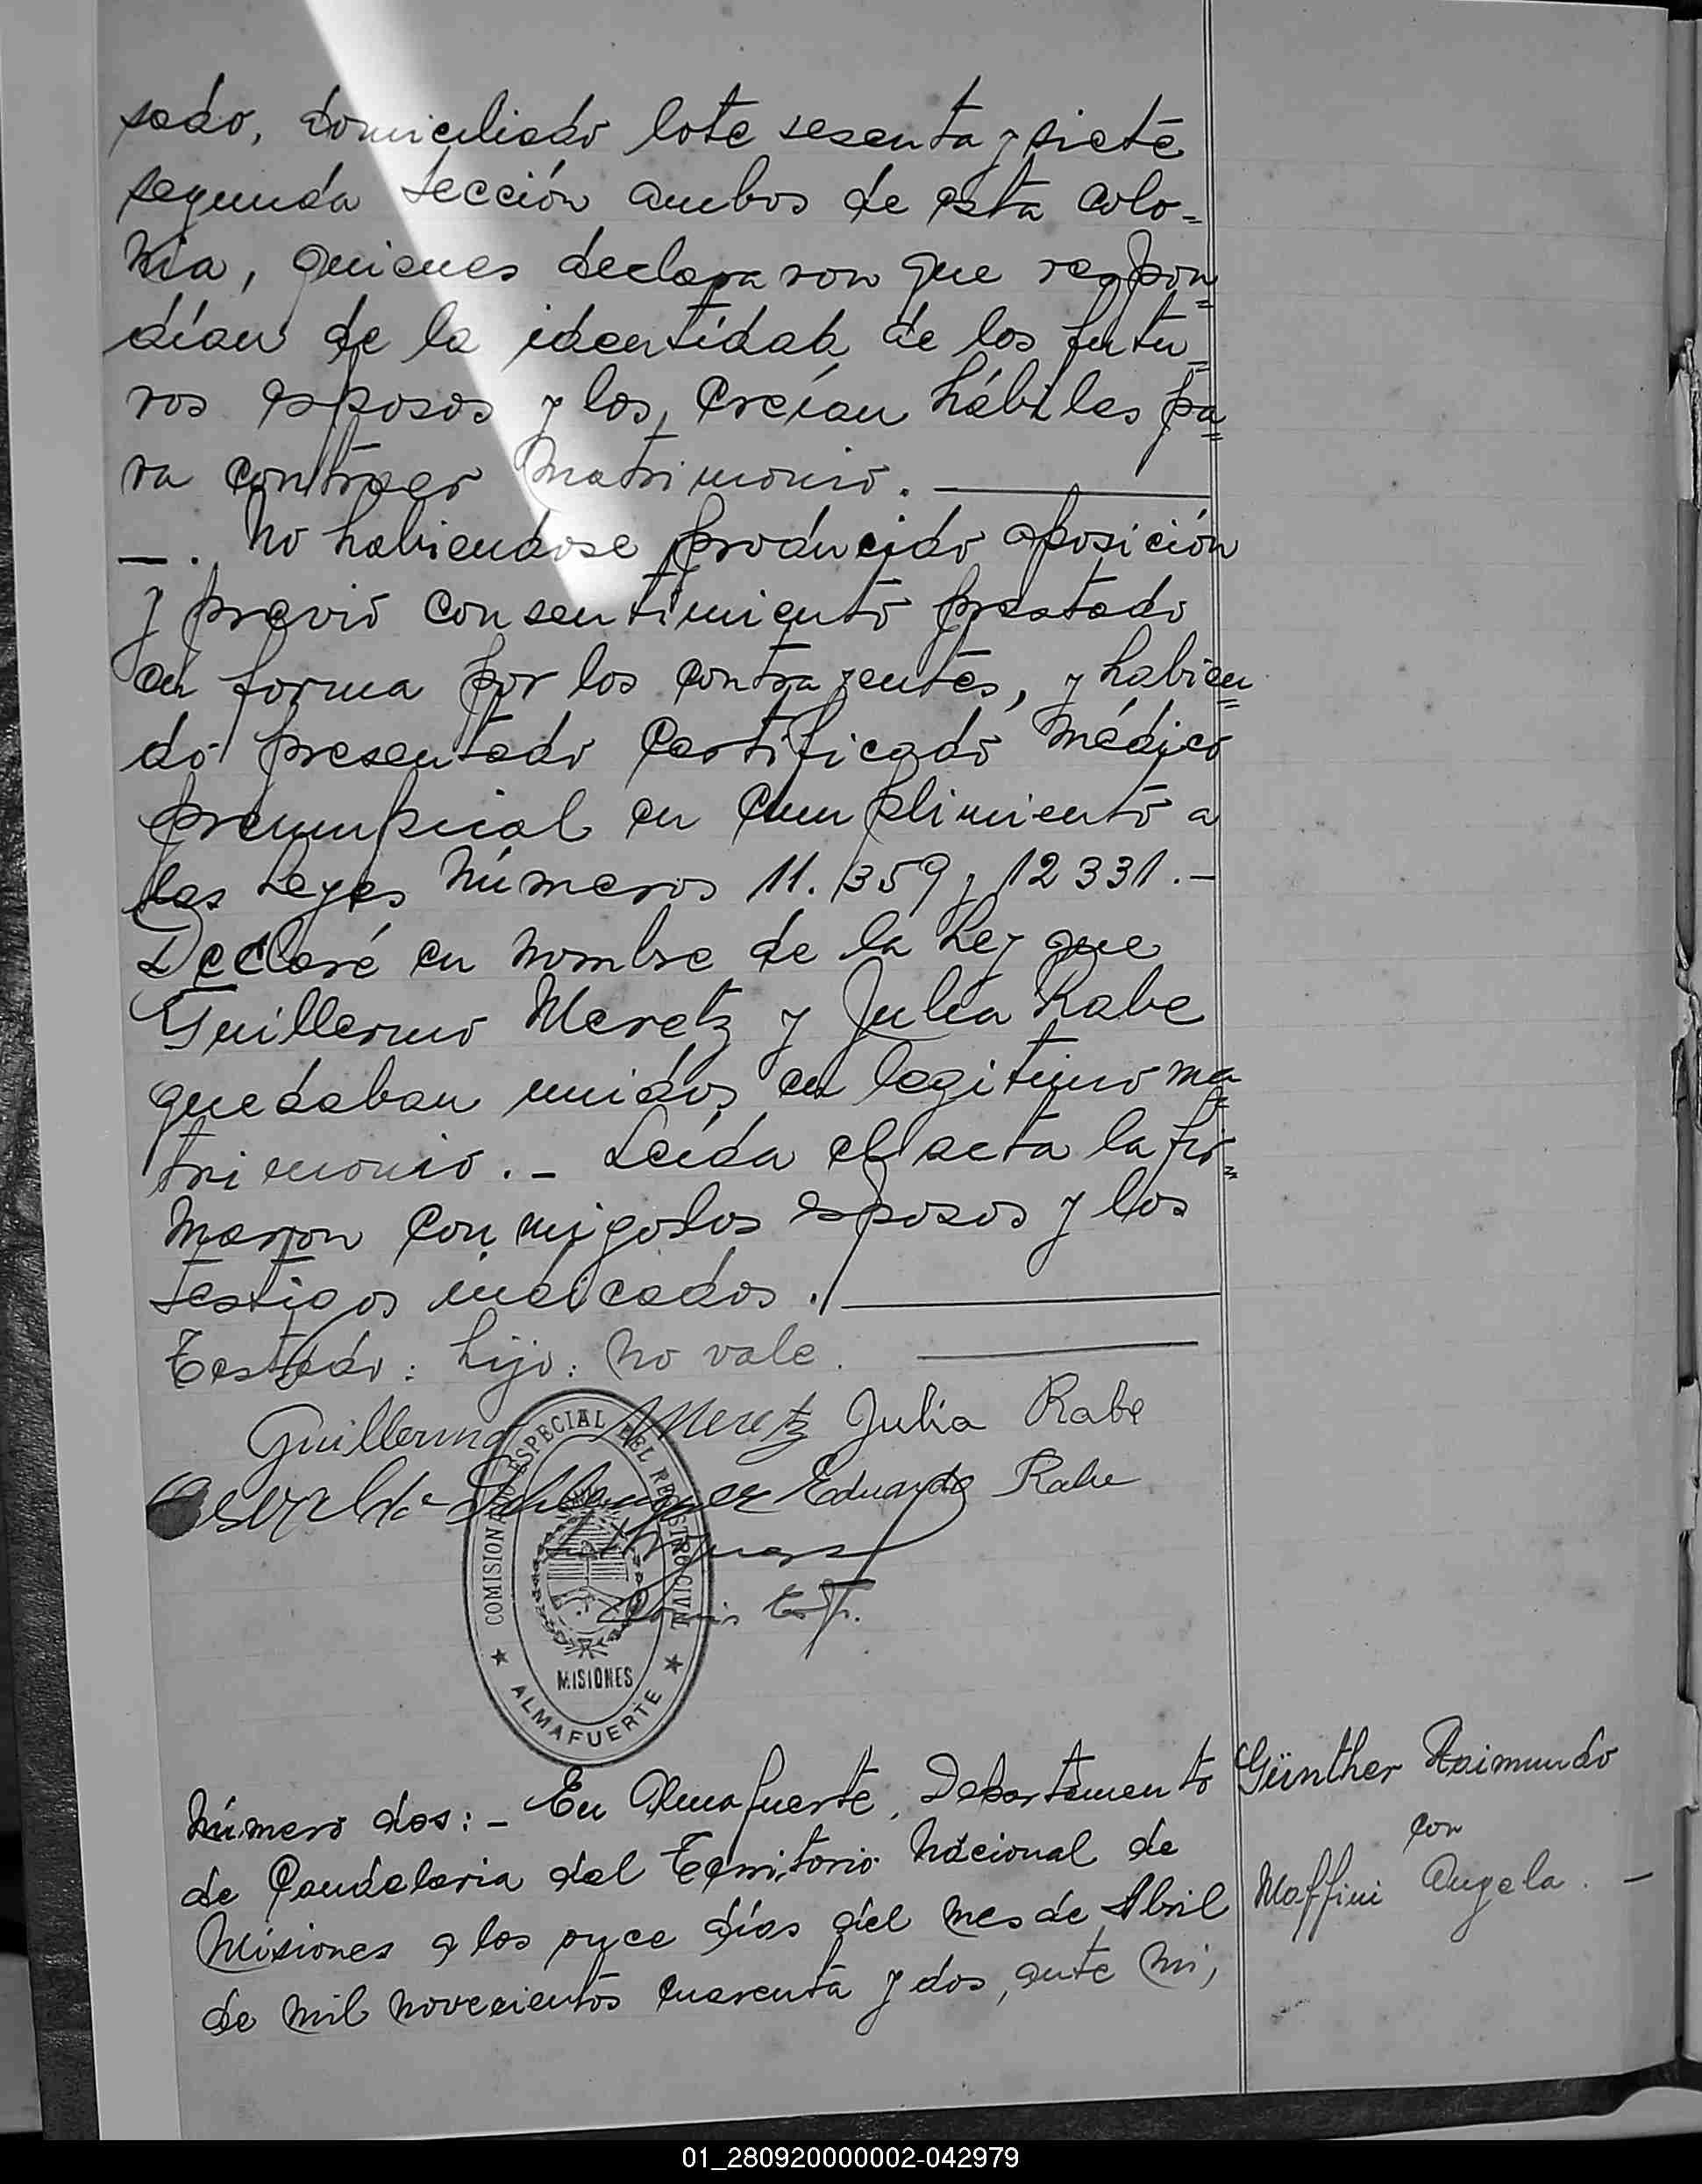 sado, domiciliado lote sesenta y siete
segunda sección ambos de esta colo=
nia, quienes declararon que respon=
dían de la identidad de los futu=
ros esposos y los creían hábiles pa=
ra contraer matrimonio.
—. No habiendose producido oposición
y previo consentimiento prestado
en forma por los contrayentes, y habien=
do presentado certificado médico
prenupcial en cumplimiento a
las Leyes Números 11.359 y 12331.-
Declaré en nombre de la Ley que
Guillermo Meretz y Julia Rabe
quedaban unidos en legitimo ma=
trimonio.- Leída el acta la fir=
maron conmigo los esposos y los
testigos indicados.
Testado: hijo: no vale.
Guillermo Meretz Julia Rabe
Eduardo Rabe
COMISIONADO ESPECIAL DEL REGISTRO CIVIL
MISIONES
ALMAFUERTE
Número dos:- En Almafuerte, Departamento
de Candelaria del Territorio Nacional de
Misiones a los once días del mes de Abril
de mil novecientos cuarenta y dos, ante mi,
Günther Raimundo
con
Maffini Angela.-
01_280920000002-042979